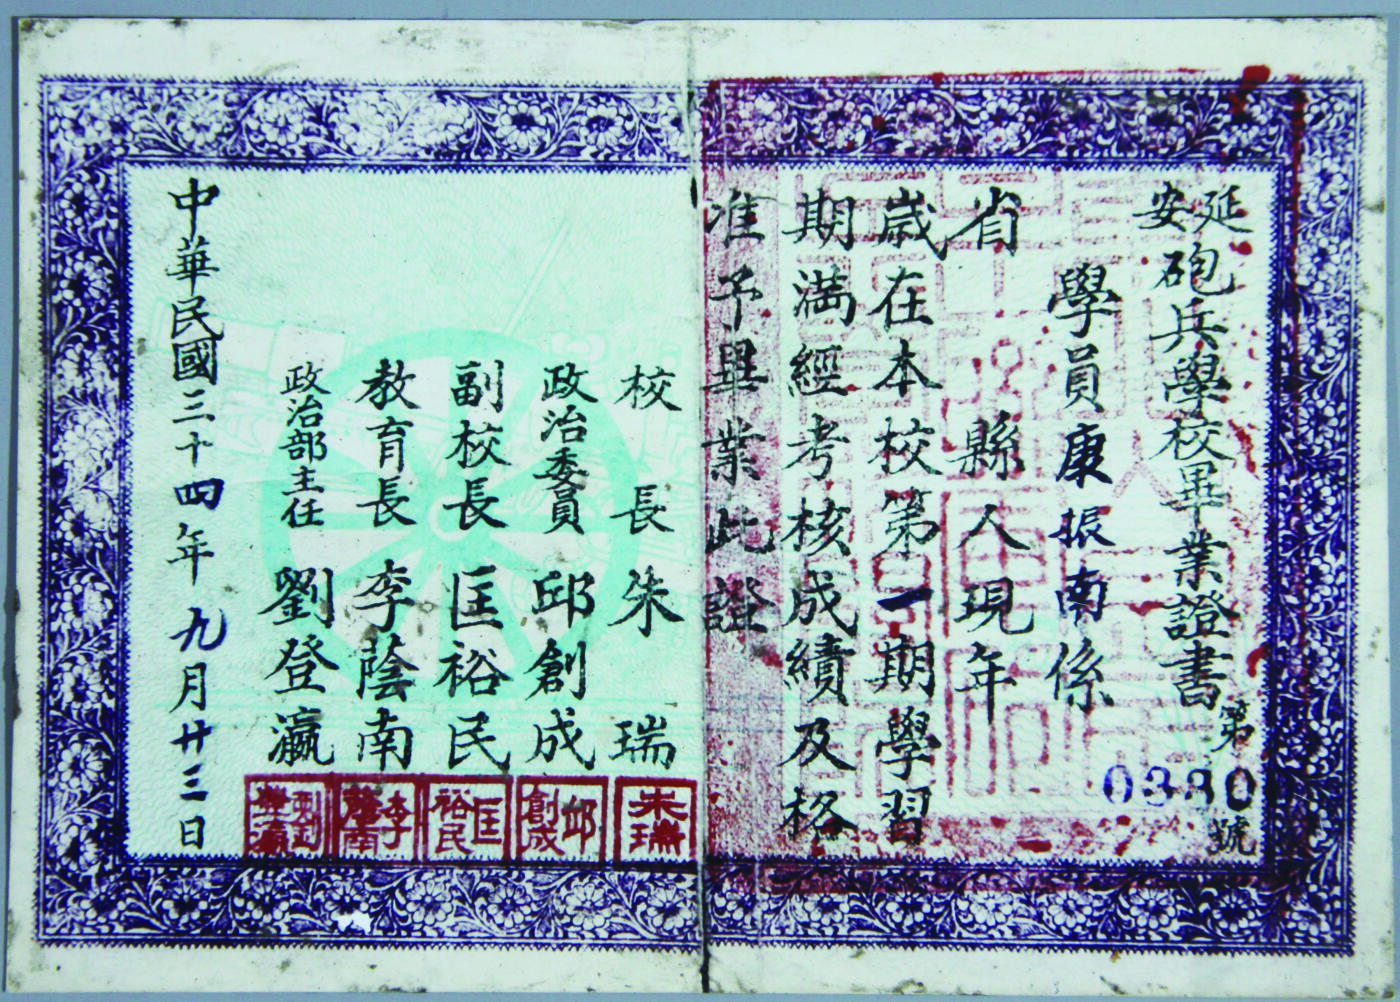 延安砲兵學校畢業證書
第0380號
學員康振南係
省 縣人現年
歲在本校第一期學習
期滿經考核成績及格
准予畢業此證
校長 朱瑞
政治委員 邱創成
副校長 匡裕民
教育長 李蔭南
政治部主任 劉登瀛
中華民國三十四年九月廿三日
朱瑞
邱創成
匡裕民
李蔭南
劉登瀛